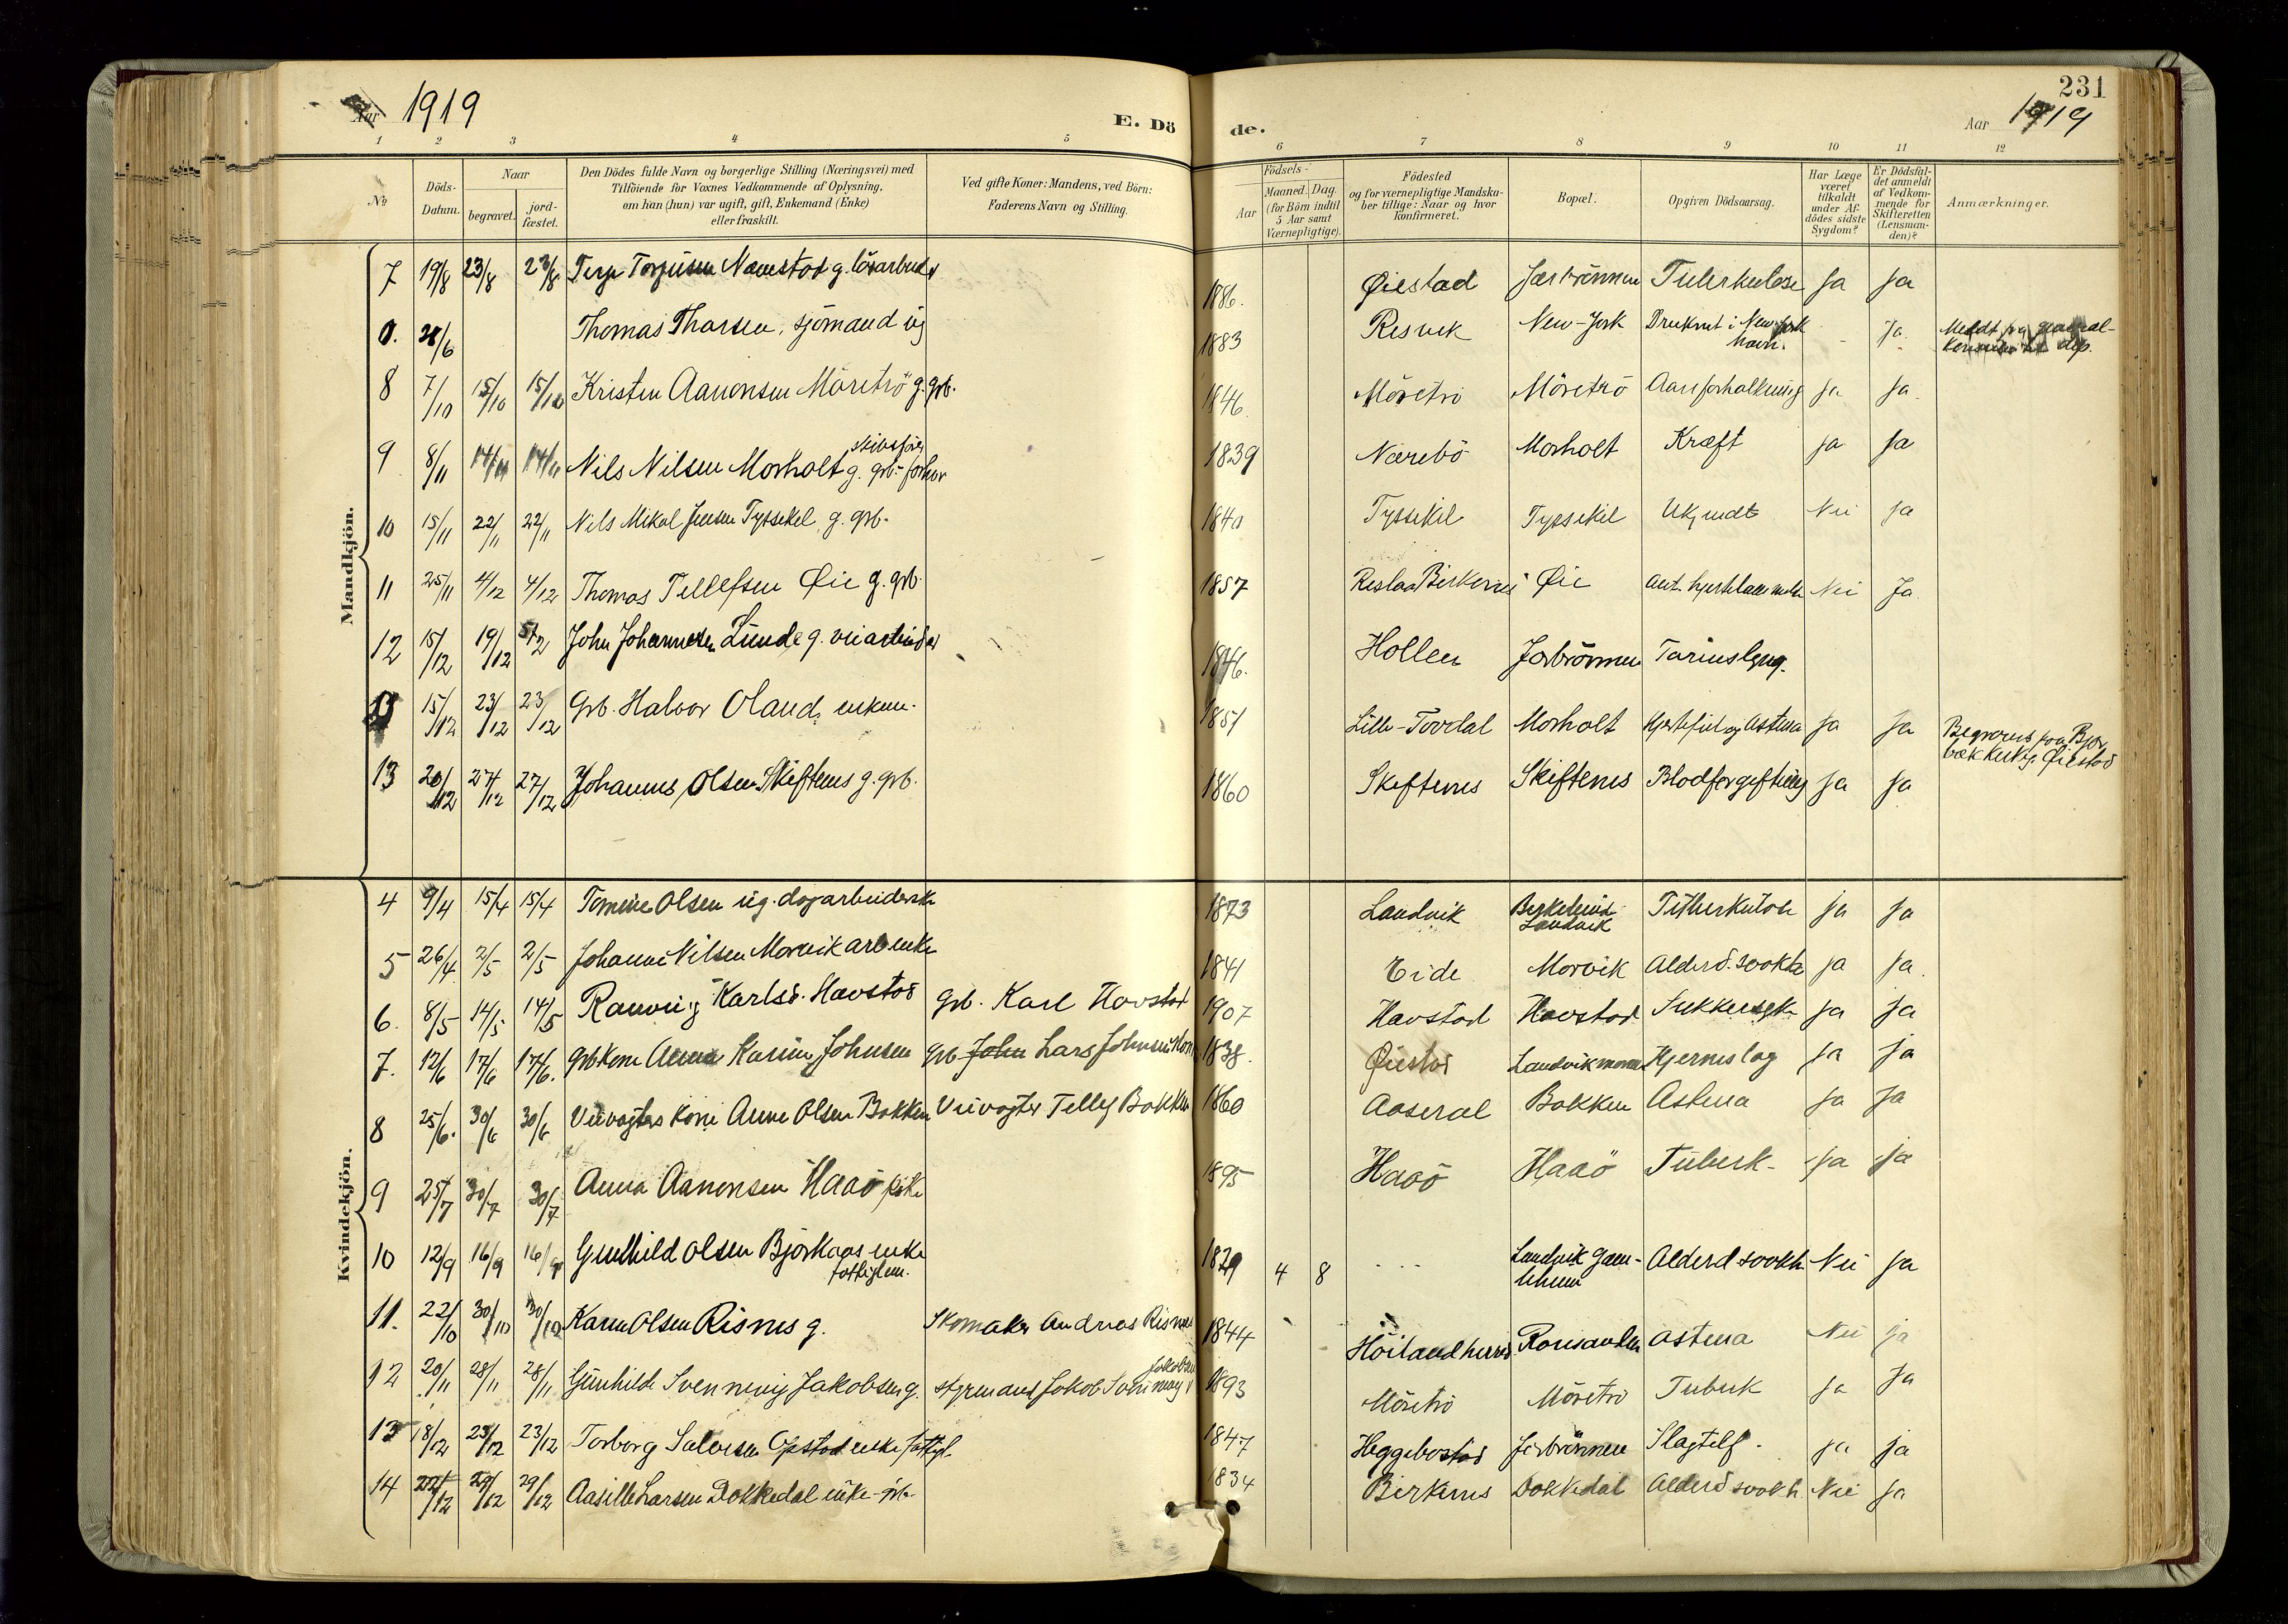 231
Aar 1919
E. Döde.
Aar 1919
1 2 3 4 5 6 7 8 9 10 11 12
No
Döds-Datum.
Naar
begravet.
jord-fæstet.
Den Dödes fulde Navn og borgerlige Stilling (Næringsvei) med
Tilföiende for Voxnes Vedkommende af Oplysning,
om han (hun) var ugift, gift, Enkemand (Enke)
eller fraskilt.
Ved gifte Koner: Mandens, ved Börn:
Faderens Navn og Stilling.
Födsels-
Aar
Maaned. Dag.
(for Börn indtil
5 Aar samt
Værnepligtige).
Födested
og for værnepligtige Mandska-
ber tillige: Naar og hvor
konfirmeret.
Bopæl.
Opgiven Dödsaarsag.
Har Læge
været
tilkaldt
under Af-
dödes sidste
Sygdom?
Er Dödsfal-
det anmeldt
af Vedkom-
mende for
Skifteretten
(Lensman-
den)?
Anmærkninger.
Mandkjön.
7 19/8 23/8 23/8 Terje Torjusen g. 1886. Øiestad Tuberkulose Ja Ja
0. /6 Thomas Tharsen, sjömand ug 1883 Resvik New-York Druknet i New York havn. Ja.
8 7/10 15/10 15/10 Kristen Aanonsen Möretrö g. grb. 1846. Möretrö Möretrö Aareforkalkning ja ja.
9 8/11 14/11 14/11 Nils Nilsen Morholt g. grb. 1839 Nærebö Morholt Kræft ja ja
10 15/11 22/11 22/11 Nils Mikal Jensen Tyssekil g. grb. 1840 Tyssekil Tyssekil Ukjendt Nei ja
11 25/11 4/12 4/12 Thomas Tellefsen Øie g. grb. 1857 Birkenes Øie Nei Ja
12 15/12 19/12 John Johannesen Lunde g. veiarbeider 1846. Hollen Jærbrönnen Tarmslyng.
15/12 23/12 23/12 Grb. Halvor Oland, enkem. 1851 Lille-Tovdal Morholt Hjertefeil og Astma ja ja Begraves paa Bjor
bæk Kirkeg. Øiestad
13 20/12 27/12 27/12 Johannes Olsen Skiftenes g. grb. 1860 Skiftenes Skiftenes Blodforgiftning ja ja
Kvindekjön.
4 9/4 15/4 15/4 Tomine Olsen ug. dagarbeiderske 1873 Landvik Landvik ja ja
5 26/4 2/5 2/5 Johanne Nilsen Morvik arb enke 1841 Eide Morvik Alderd. svakhe ja ja.
6. 8/5 14/5 14/5 Ranveig Karlsd. Havstad grb. Karl Havstad 1907 Havstad Havstad Sukkersyke ja ja
7. 12/6 17/6 17/6. grb kone Anna Karine Johnsen grb. John Lars Johnsen 1838. Øiestad Landvikmoen Hjerneslag ja ja
8 25/6. 30/6 30/6 Veivogters kone Anne Olsen Bakken Veivogter Tellef Bakken 1860 Aaseral Bakken Astma ja ja
9 25/7 30/7 30/7 Anna Aanonsen Haaö pike 1895 Haaö Haaö Tuberk- ja ja
10 12/9 16/9 16/9 Gunhild Olsen Björkaas enke
fattiglem. 1829 4 8 . . . Landvik gam-
lehem Alderd svakh. Nei ja
11. 22/10 30/10 30/10 Karen Olsen Risnes g. Skomaker Andreas Risnes 1844 Höilandherred Astma Nei ja
12 20/11 28/11 28/11 Gunhilde Svenning Jakobsen g. styrmand Jakob Svenning Jakobsen 1893 Möretrö Möretrö Tuberk ja ja
13 18/12 23/12 23/12 Torborg Salvesen Opstad enke fattigl. 1847 Heggebostad Jærbrönnen Slagtilf. ja ja
14 22/12 29/12 29/12 Aasille Larsen Dokkedal enke grb. 1834 Birkenes Dokkedal Alderd svakh. Nei ja